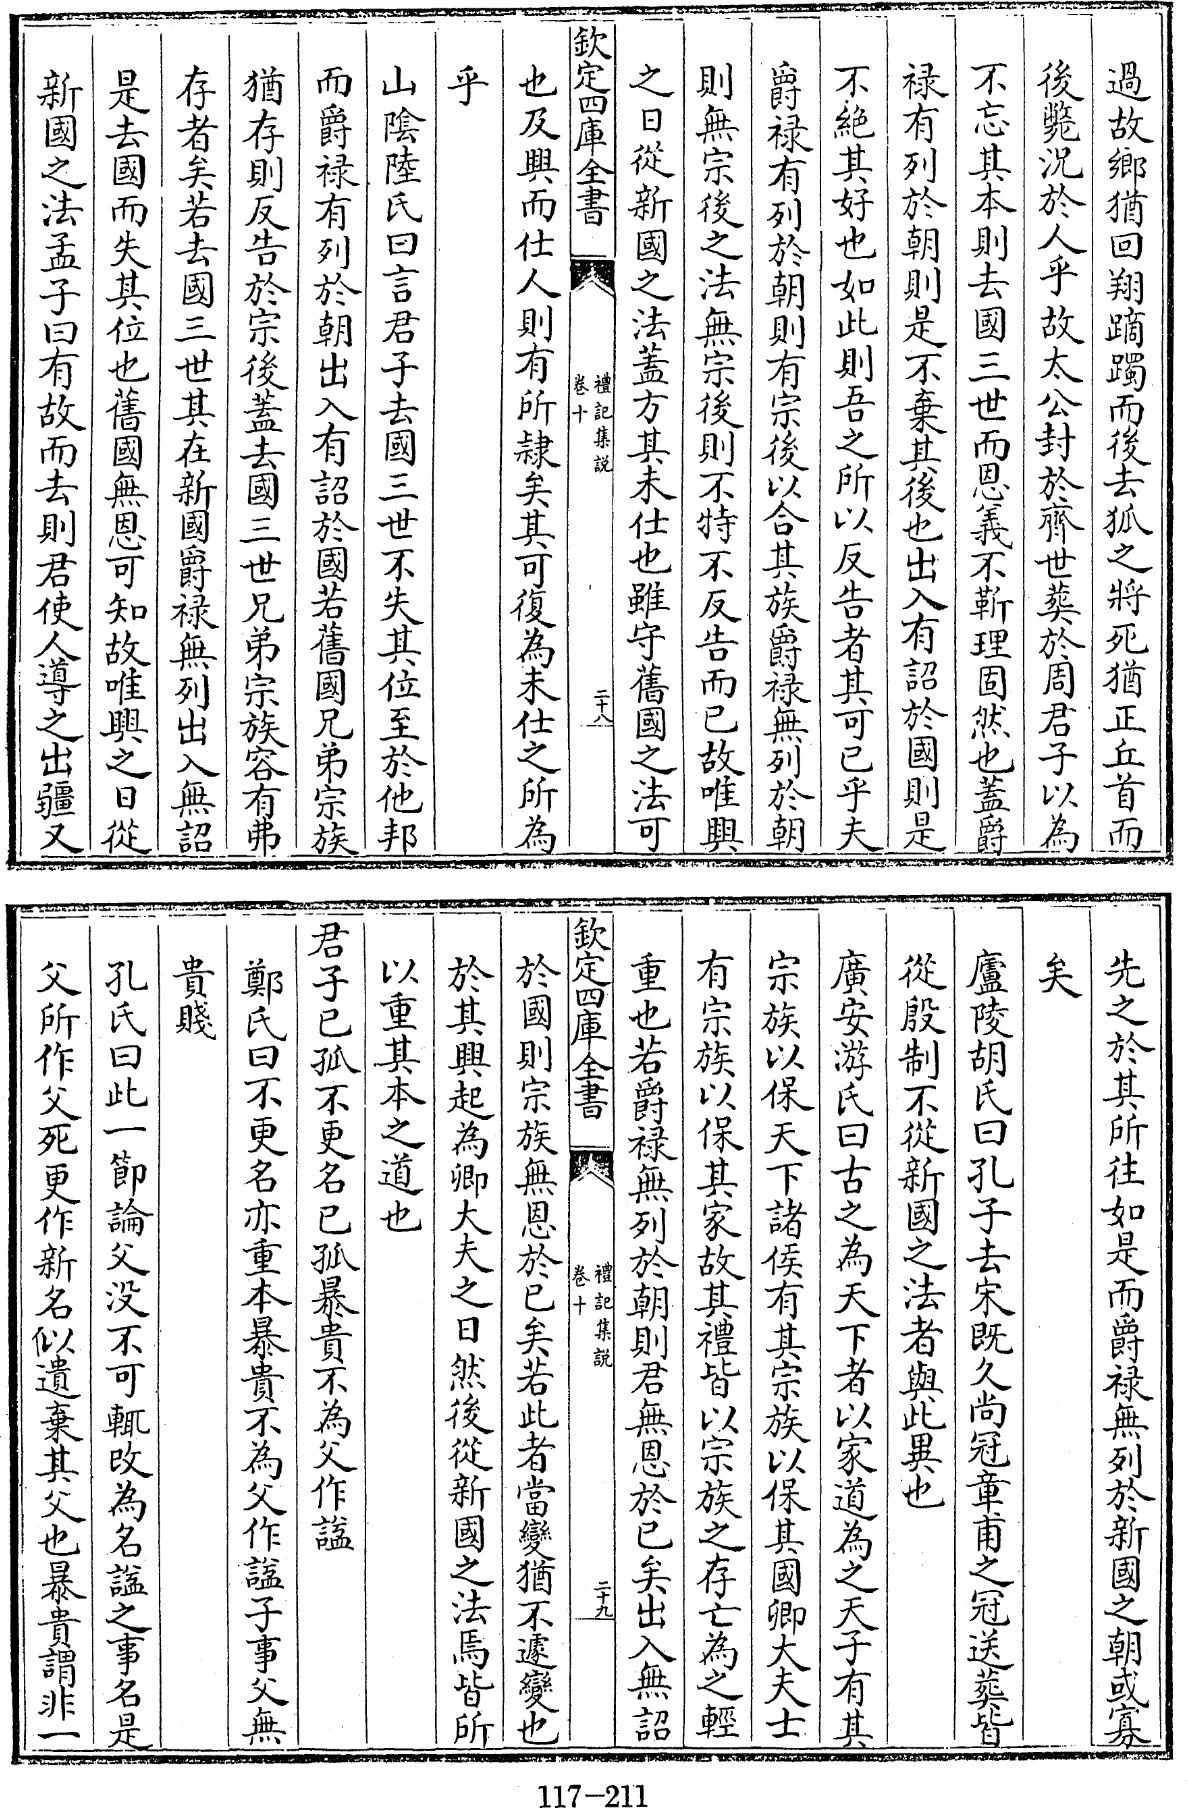 過故鄉猶回翔蹢躅而後去狐之將死猶正丘首而
後斃況於人乎故太公封於齊世葬於周君子以為
不忘其本則去國三世而恩義不靳理固然也蓋爵
祿有列於朝則是不棄其後也出入有詔於國則是
不絶其好也如此則吾之所以反告者其可已乎夫
爵祿有列於朝則有宗後以合其族爵祿無列於朝
則無宗後之法無宗後則不特不反告而已故唯興
之日從新國之法蓋方其未仕也雖守舊國之法可
欽定四庫全書
禮記集説
卷十
二十八
也及興而仕人則有所隷矣其可復為未仕之所為
乎
山陰陸氏曰言君子去國三世不失其位至於他邦
而爵祿有列於朝出入有詔於國若舊國兄弟宗族
猶存則反告於宗後蓋去國三世兄弟宗族容有弗
存者矣若去國三世其在新國爵祿無列出入無詔
是去國而失其位也舊國無恩可知故唯興之日從
新國之法孟子曰有故而去則君使人導之出疆又
先之於其所往如是而爵祿無列於新國之朝或寡
矣
廬陵胡氏曰孔子去宋既久尚冠章甫之冠送葬皆
從殷制不從新國之法者與此異也
廣安游氏曰古之為天下者以家道為之天子有其
宗族以保天下諸侯有其宗族以保其國卿大夫士
有宗族以保其家故其禮皆以宗族之存亡為之輕
重也若爵祿無列於朝則君無恩於已矣出入無詔
欽定四庫全書
禮記集説
卷十
二十九
於國則宗族無恩於已矣若此者當變猶不遽變也
於其興起為卿大夫之日然後從新國之法焉皆所
以重其本之道也
君子已孤不更名已孤暴貴不為父作諡
鄭氏曰不更名亦重本暴貴不為父作諡子事父無
貴賤
孔氏曰此一節論父没不可輒改為名諡之事名是
父所作父死更作新名似遺棄其父也暴貴謂非一
117-211